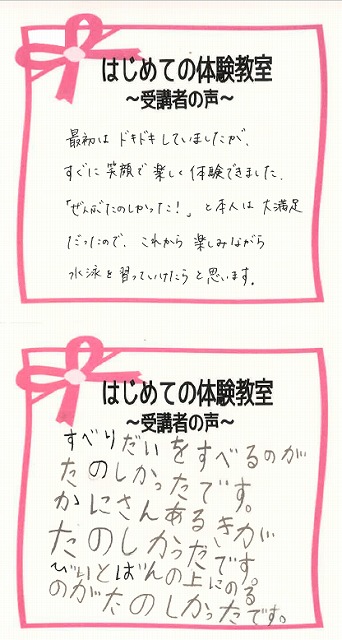 はじめての体験教室
～受講者の声～
最初は ドキドキしていましたが、
すぐに 笑顔で 楽しく 体験できました。
「ぜんぶたのしかった!」 と本人は 大満足
だったので、これから 楽しみながら
水泳を 習っていけたら と思います。
はじめての体験教室
～受講者の声～
すべりだいをすべるのが
たのしかったです。
かにさんあるきが
たのしかったです。
びいとばんの上にのる
のがたのしかったです。